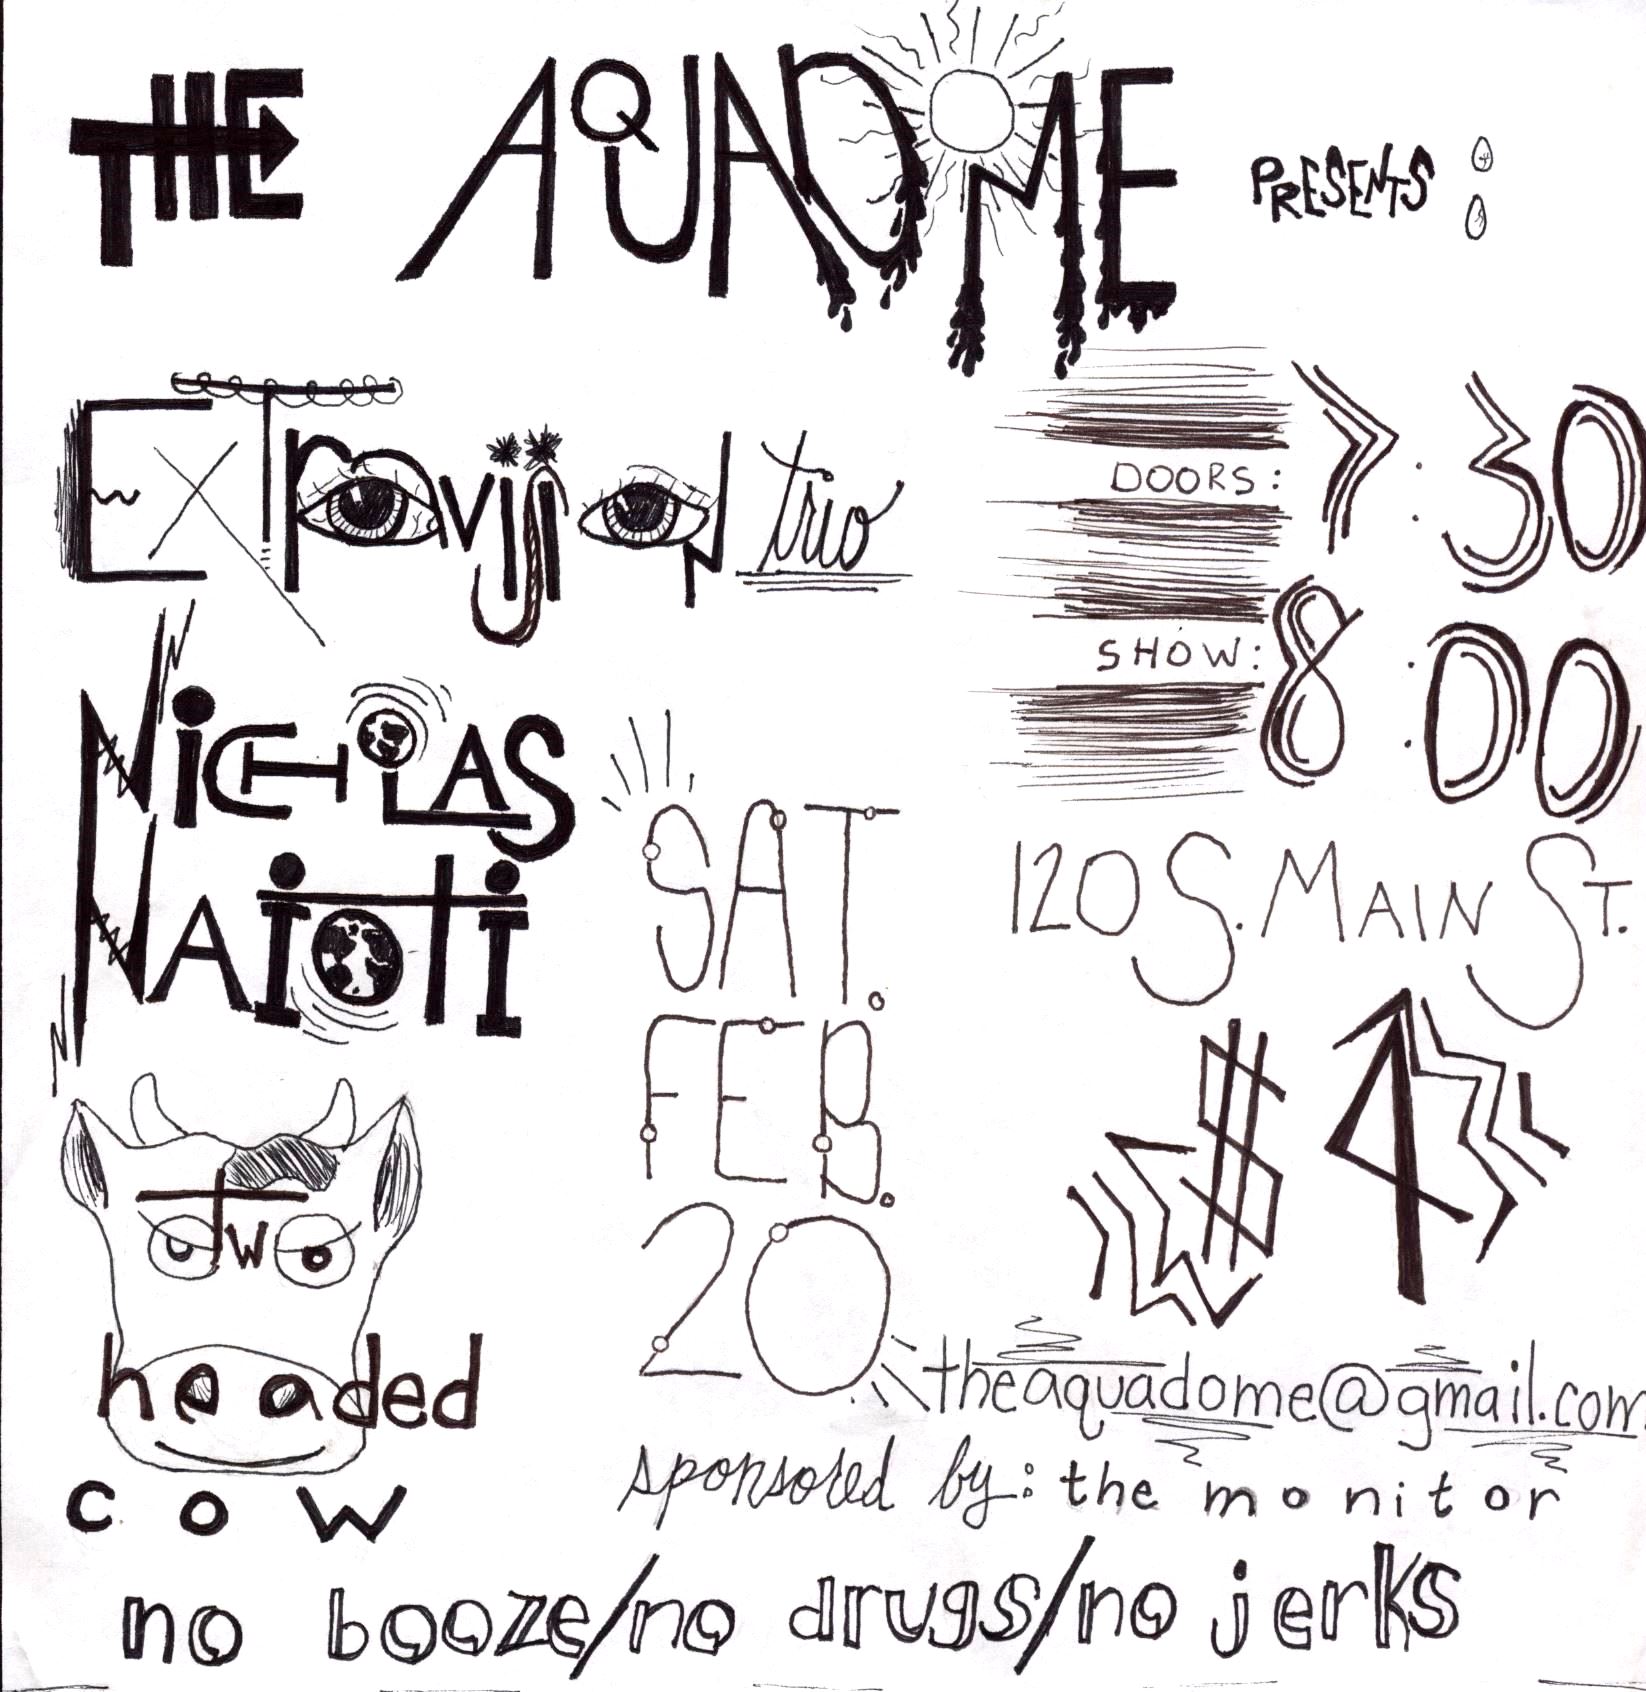 THE AQUADOME PRESENTS:
ExTravijjion trio
DOORS: 7:30
SHOW: 8:00
NICHOLAS
NAIOTI
SAT.
FEB.
20
120 S. MAIN ST.
$4
Two
headed
cow
theaquadome@gmail.com
sponsored by: the monitor
no booze/no drugs/no jerks